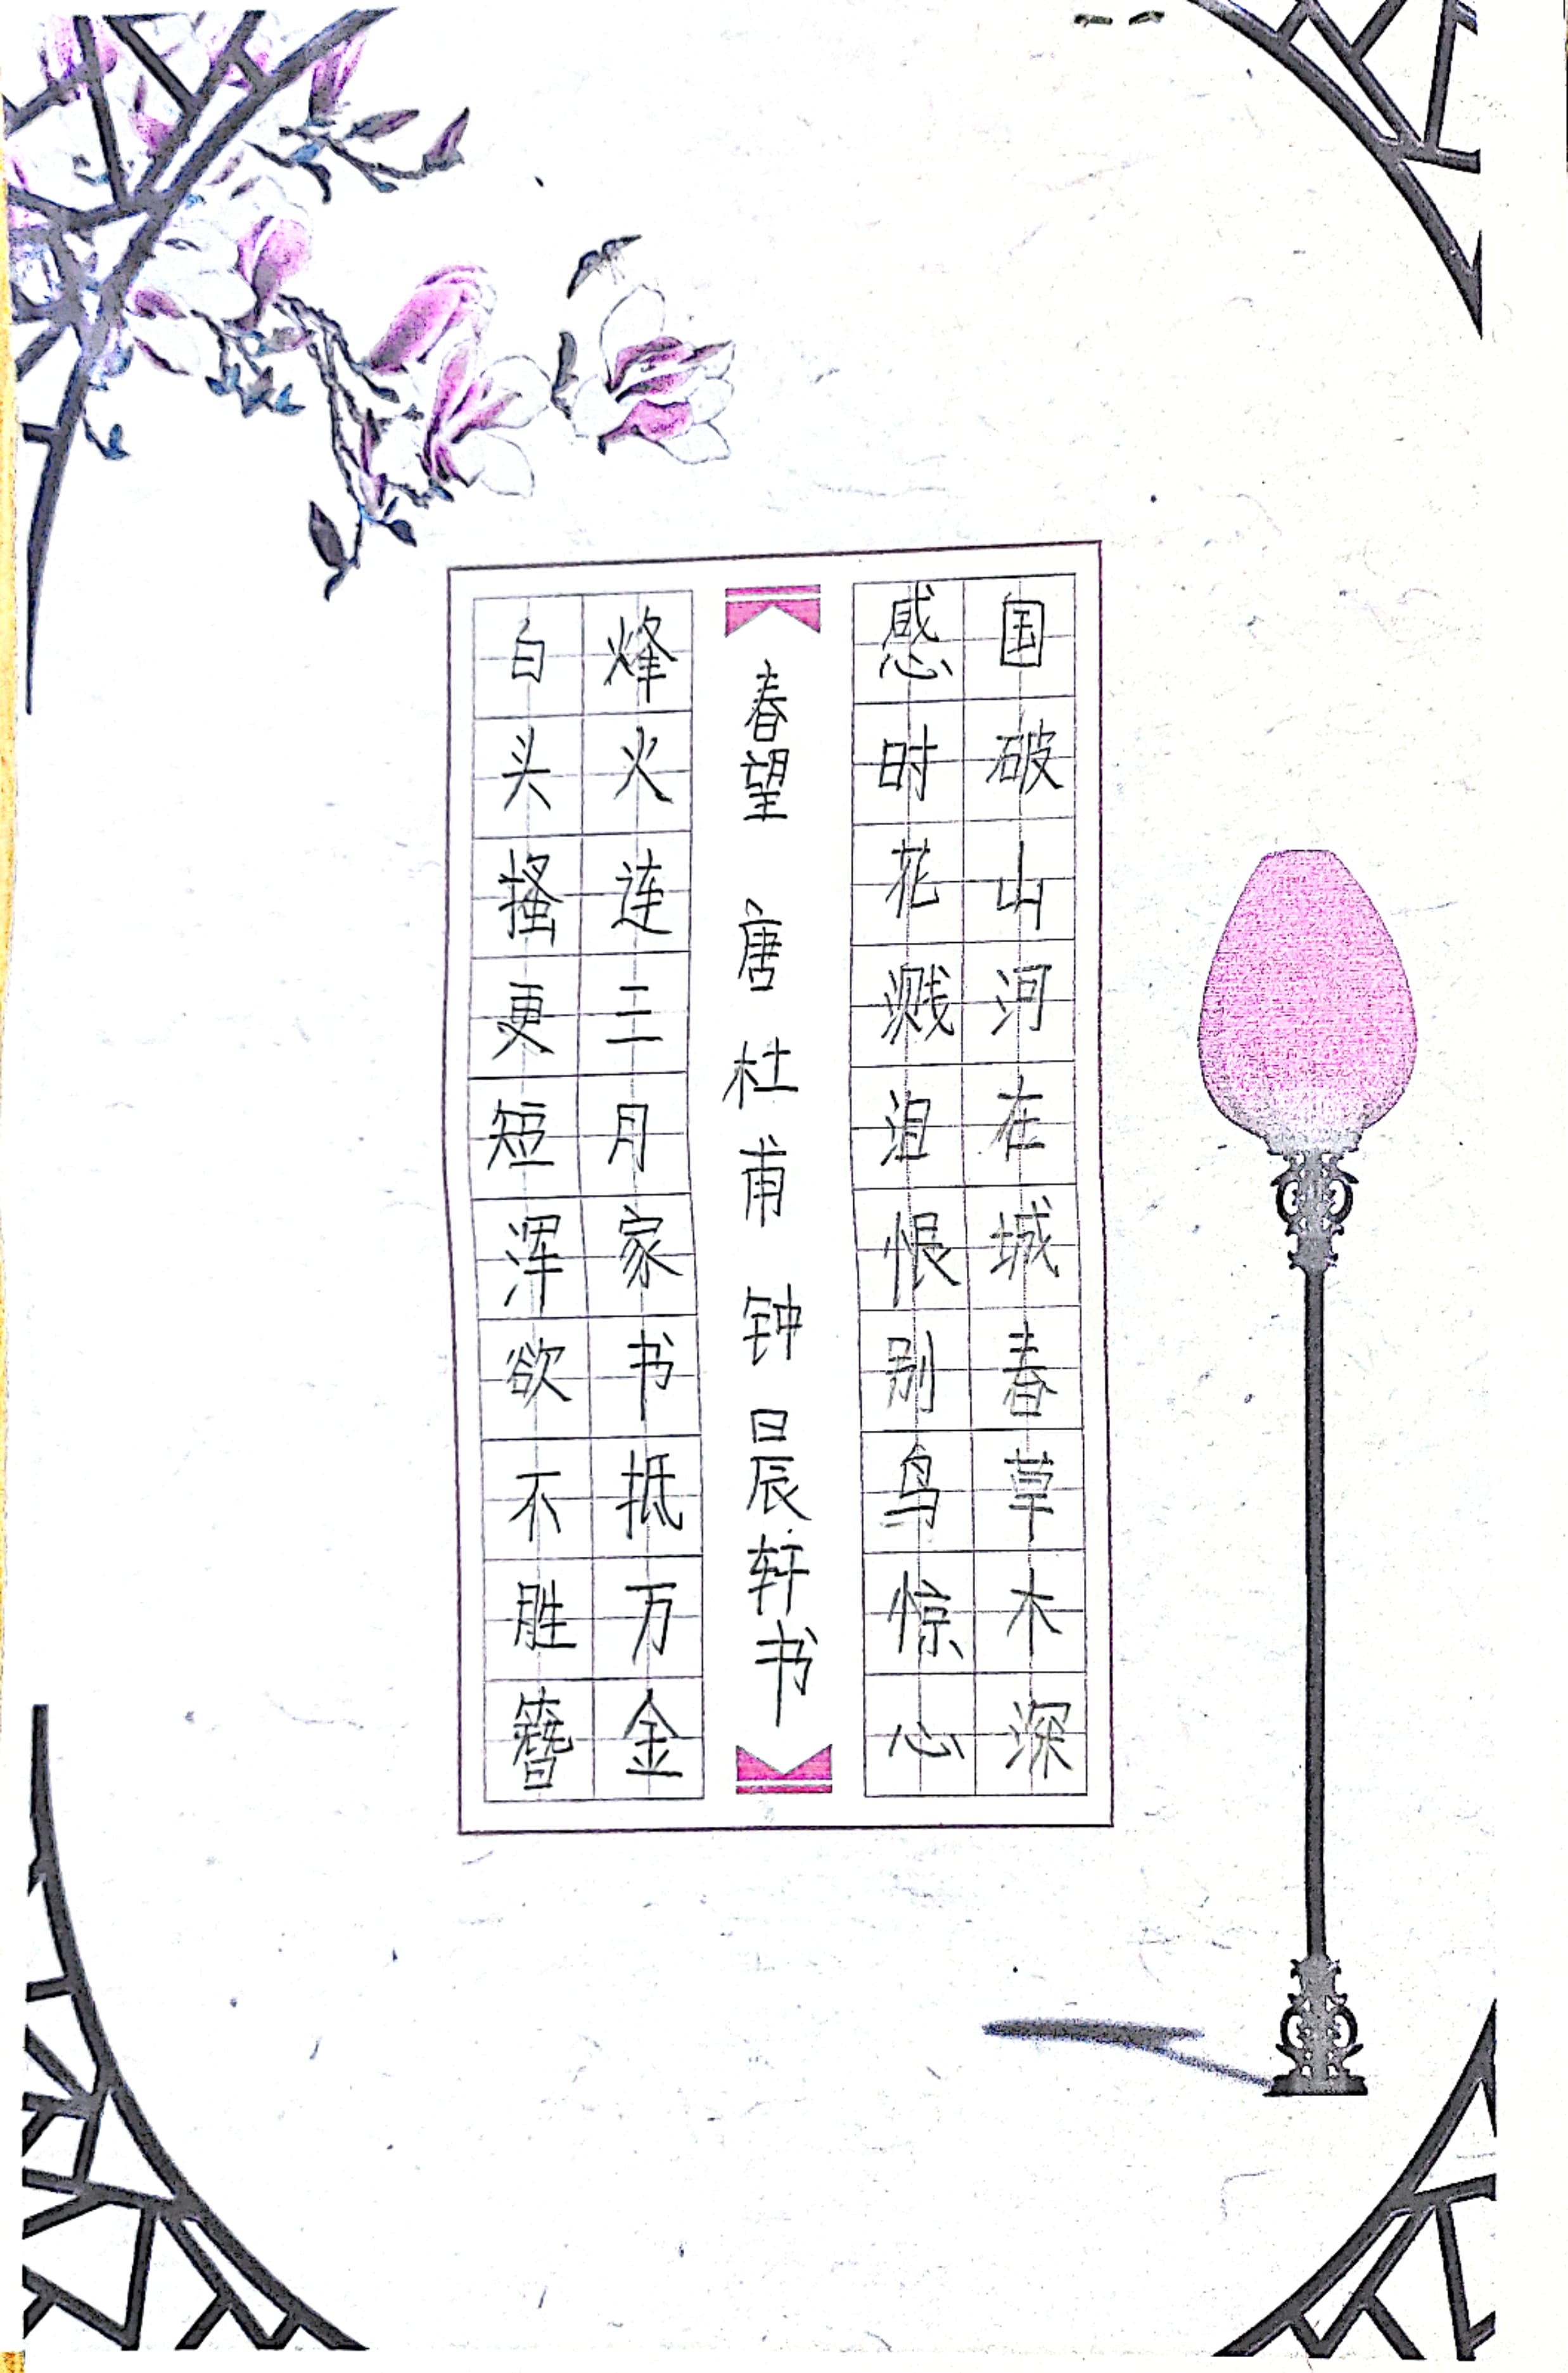 国破山河在城春草木深
感时花溅泪恨别鸟惊心
春望 唐 杜甫 钟晨轩书
烽火连三月家书抵万金
白头搔更短浑欲不胜簪